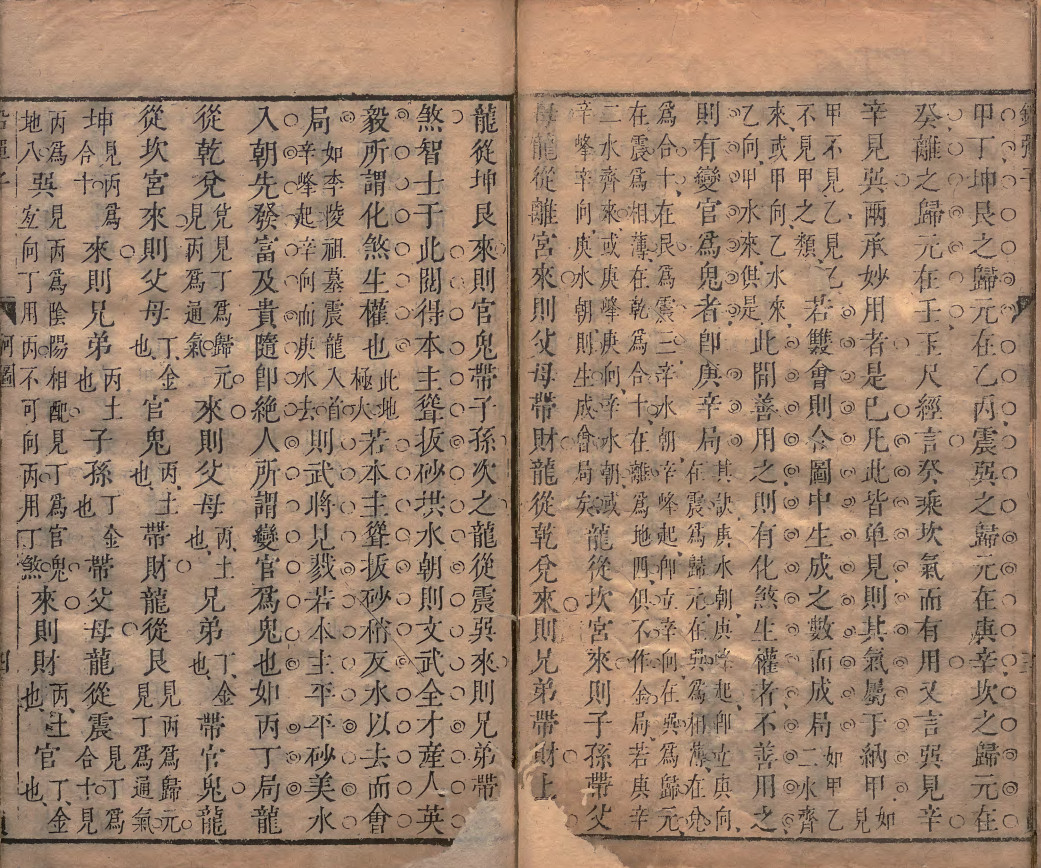 甲丁坤艮之歸元在乙丙震巽之歸元在庚辛坎之歸元在
癸離之歸元在壬玉尺經言癸乘坎氣而有用又言巽見辛
辛見巽兩承妙用者是巳凡此皆单見則其氣屬于納甲如見
甲不見乙見乙不見甲之類若雙會則合圖中生成之數而成局如甲乙二水齊
來或甲向乙水來乙向甲水來俱是此間善用之則有化煞生權者不善用之
則有變官爲鬼者卽庚辛局其訣庚水朝庚峰起卽立庚向在震爲歸元在巽爲相薄在兌
爲合十在艮爲震三辛水朝辛峰起卽立辛向在巽爲歸元在震爲相薄在乾爲合十在離爲地四俱不作翕局若庚辛
二水齊來或庚峰庚向辛水朝或辛峰辛向庚水朝則生成會局矣龍從坎宮來則子孫帶父
母龍從離宮來則父母帶財龍從乾兌來則兄弟帶財上
龍從坤艮來則官鬼帶子孫次之龍從震巽來則兄弟帶
煞智士于此閱得本主聳拔砂拱水朝則文武全才產人英
毅所謂化煞生權也此地極大若本主聳拔砂稍反水以去而會
局如李陵祖墓震龍入首辛峰起辛向而庚水去則武將見戮若本主平平砂美水
入朝先發富及貴隨卽絶人所謂變官爲鬼也如丙丁局龍
從乾兌兌見丁爲歸元見丙爲通氣來則父母丙土也兄弟丁金也帶官鬼龍
從坎宮來則父母丁金也官鬼丙土也帶財龍從艮見丙爲歸元見丁爲通氣
坤見丙爲合十來則兄弟丙土也子孫丁金也帶父母龍從震見丁爲合十見
丙爲地八巽見丙爲陰陽相配見丁爲官鬼宜向丁用丙不可向丙用丁煞來則財丙土也官丁金也